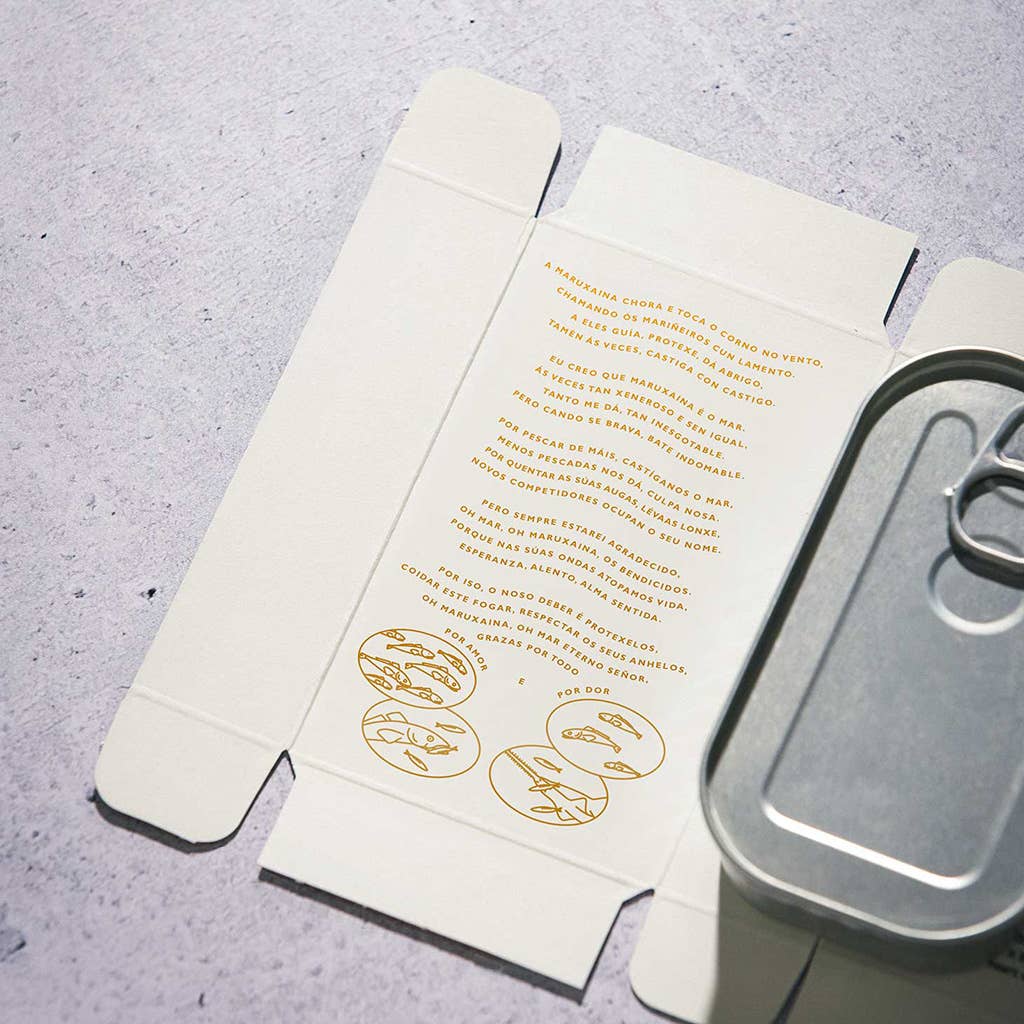 A MARUXAINA CHORA E TOCA O CORNO NO VENTO,
CHAMANDO ÓS MARIÑEIROS CUN LAMENTO.
A ELES GUÍA, PROTEXE, DÁ ABRIGO,
TAMÉN ÁS VECES, CASTIGA CON CASTIGO.
EU CREO QUE MARUXAÍNA É O MAR,
ÁS VECES TAN XENEROSO E SEN IGUAL,
TANTO ME DÁ, TAN INESGOTABLE.
PERO CANDO SE BRAVA, BATE INDOMABLE.
POR PESCAR DE MÁIS, CASTÍGANOS O MAR,
MENOS PESCADAS NOS DÁ, CULPA NOSA.
POR QUENTAR AS SÚAS AUGAS, LÉVAAS LONXE,
NOVOS COMPETIDORES OCUPAN O SEU NOME.
PERO SEMPRE ESTAREI AGRADECIDO,
OH MAR, OH MARUXAINA, OS BENDICIDOS.
PORQUE NAS SÚAS ONDAS ATOPAMOS VIDA,
ESPERANZA, ALENTO, ALMA SENTIDA.
POR ISO, O NOSO DEBER É PROTEXELOS,
COIDAR ESTE FOGAR, RESPECTAR OS SEUS ANHELOS,
OH MARUXAINA, OH MAR ETERNO SEÑOR,
GRAZAS POR TODO
POR AMOR
E
POR DOR